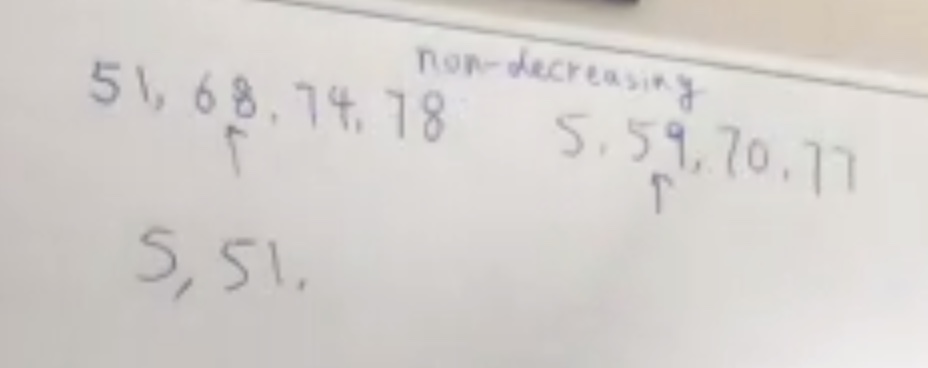 non-decreasing
51, 68, 74, 78
5, 59, 70, 77
5, 51,